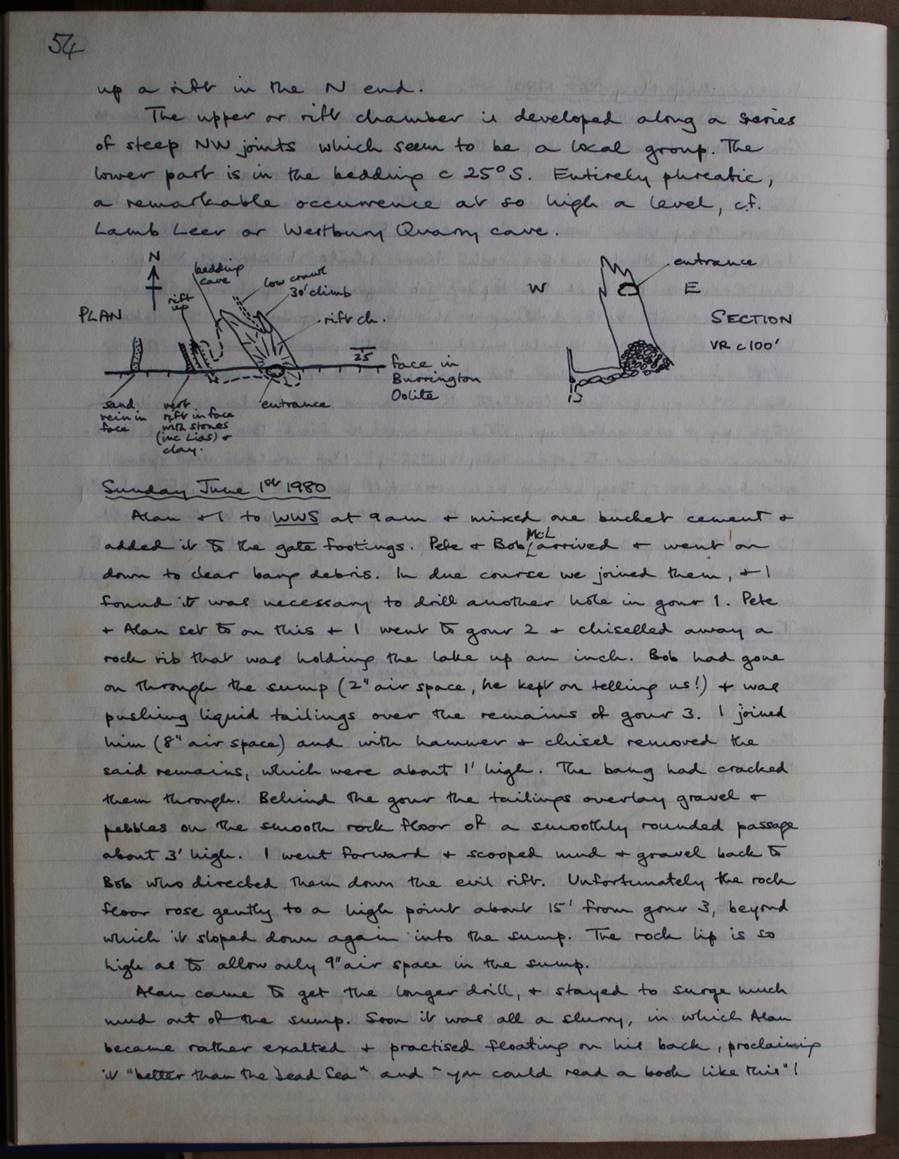 54
up a rift in the N end.
The upper or rift chamber is developed along a series
of steep NW joints which seem to be a local group. The
lower part is in the bedding c 25° S. Entirely phreatic,
a remarkable occurrence at so high a level, cf.
Lamb Leer or Westbury Quarry cave.
N
bedding
cave
low crawl
30' climb
rift
up
PLAN
rift ch.
25
face in
Burrington
Oolite
sand
vein in
face
vert
rift in face
with stones
(inc Lias) +
clay.
entrance
entrance
W
E
SECTION
VR c 100'
15
Sunday June 1st 1980
Alan + I to WWS at 9am + mixed one bucket cement +
added it to the gate footings. Pete + Bob McL arrived + went on
down to clear bang debris. In due course we joined them, + I
found it was necessary to drill another hole in gour 1. Pete
+ Alan set to on this + I went to gour 2 + chiselled away a
rock rib that was holding the lake up an inch. Bob had gone
on through the sump (2" air space, he kept on telling us!) + was
pushing liquid tailings over the remains of gour 3. I joined
him (8" air space) and with hammer + chisel removed the
said remains, which were about 1' high. The bang had cracked
them through. Behind the gour the tailings overlay gravel +
pebbles on the smooth rock floor of a smoothly rounded passage
about 3' high. I went forward + scooped mud + gravel back to
Bob who directed them down the evil rift. Unfortunately the rock
floor rose gently to a high point about 15' from gour 3, beyond
which it sloped down again into the sump. The rock lip is so
high as to allow only 9" air space in the sump.
Alan came to get the longer drill, + stayed to surge much
mud out of the sump. Soon it was all a slurry, in which Alan
became rather exalted + practised floating on his back, proclaiming
it "better than the Dead Sea" and "you could read a book like this"!